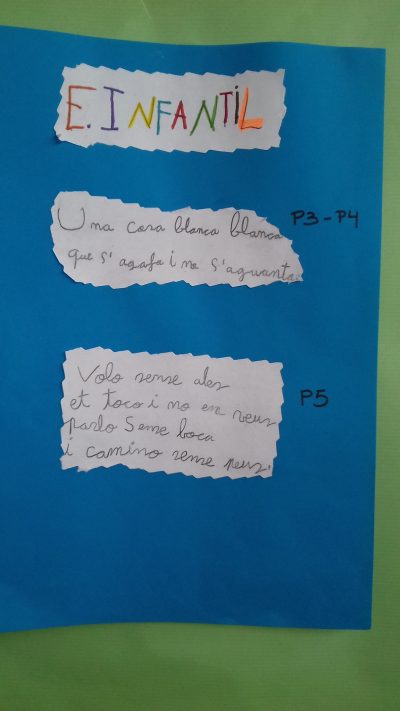 E. INFANTIL
Una cosa blanca blanca
que s'agafa i no s'aguanta
P3-P4
Volo sense ales
et toco i no em veus
parlo sense boca
i camino sense peus.
P5